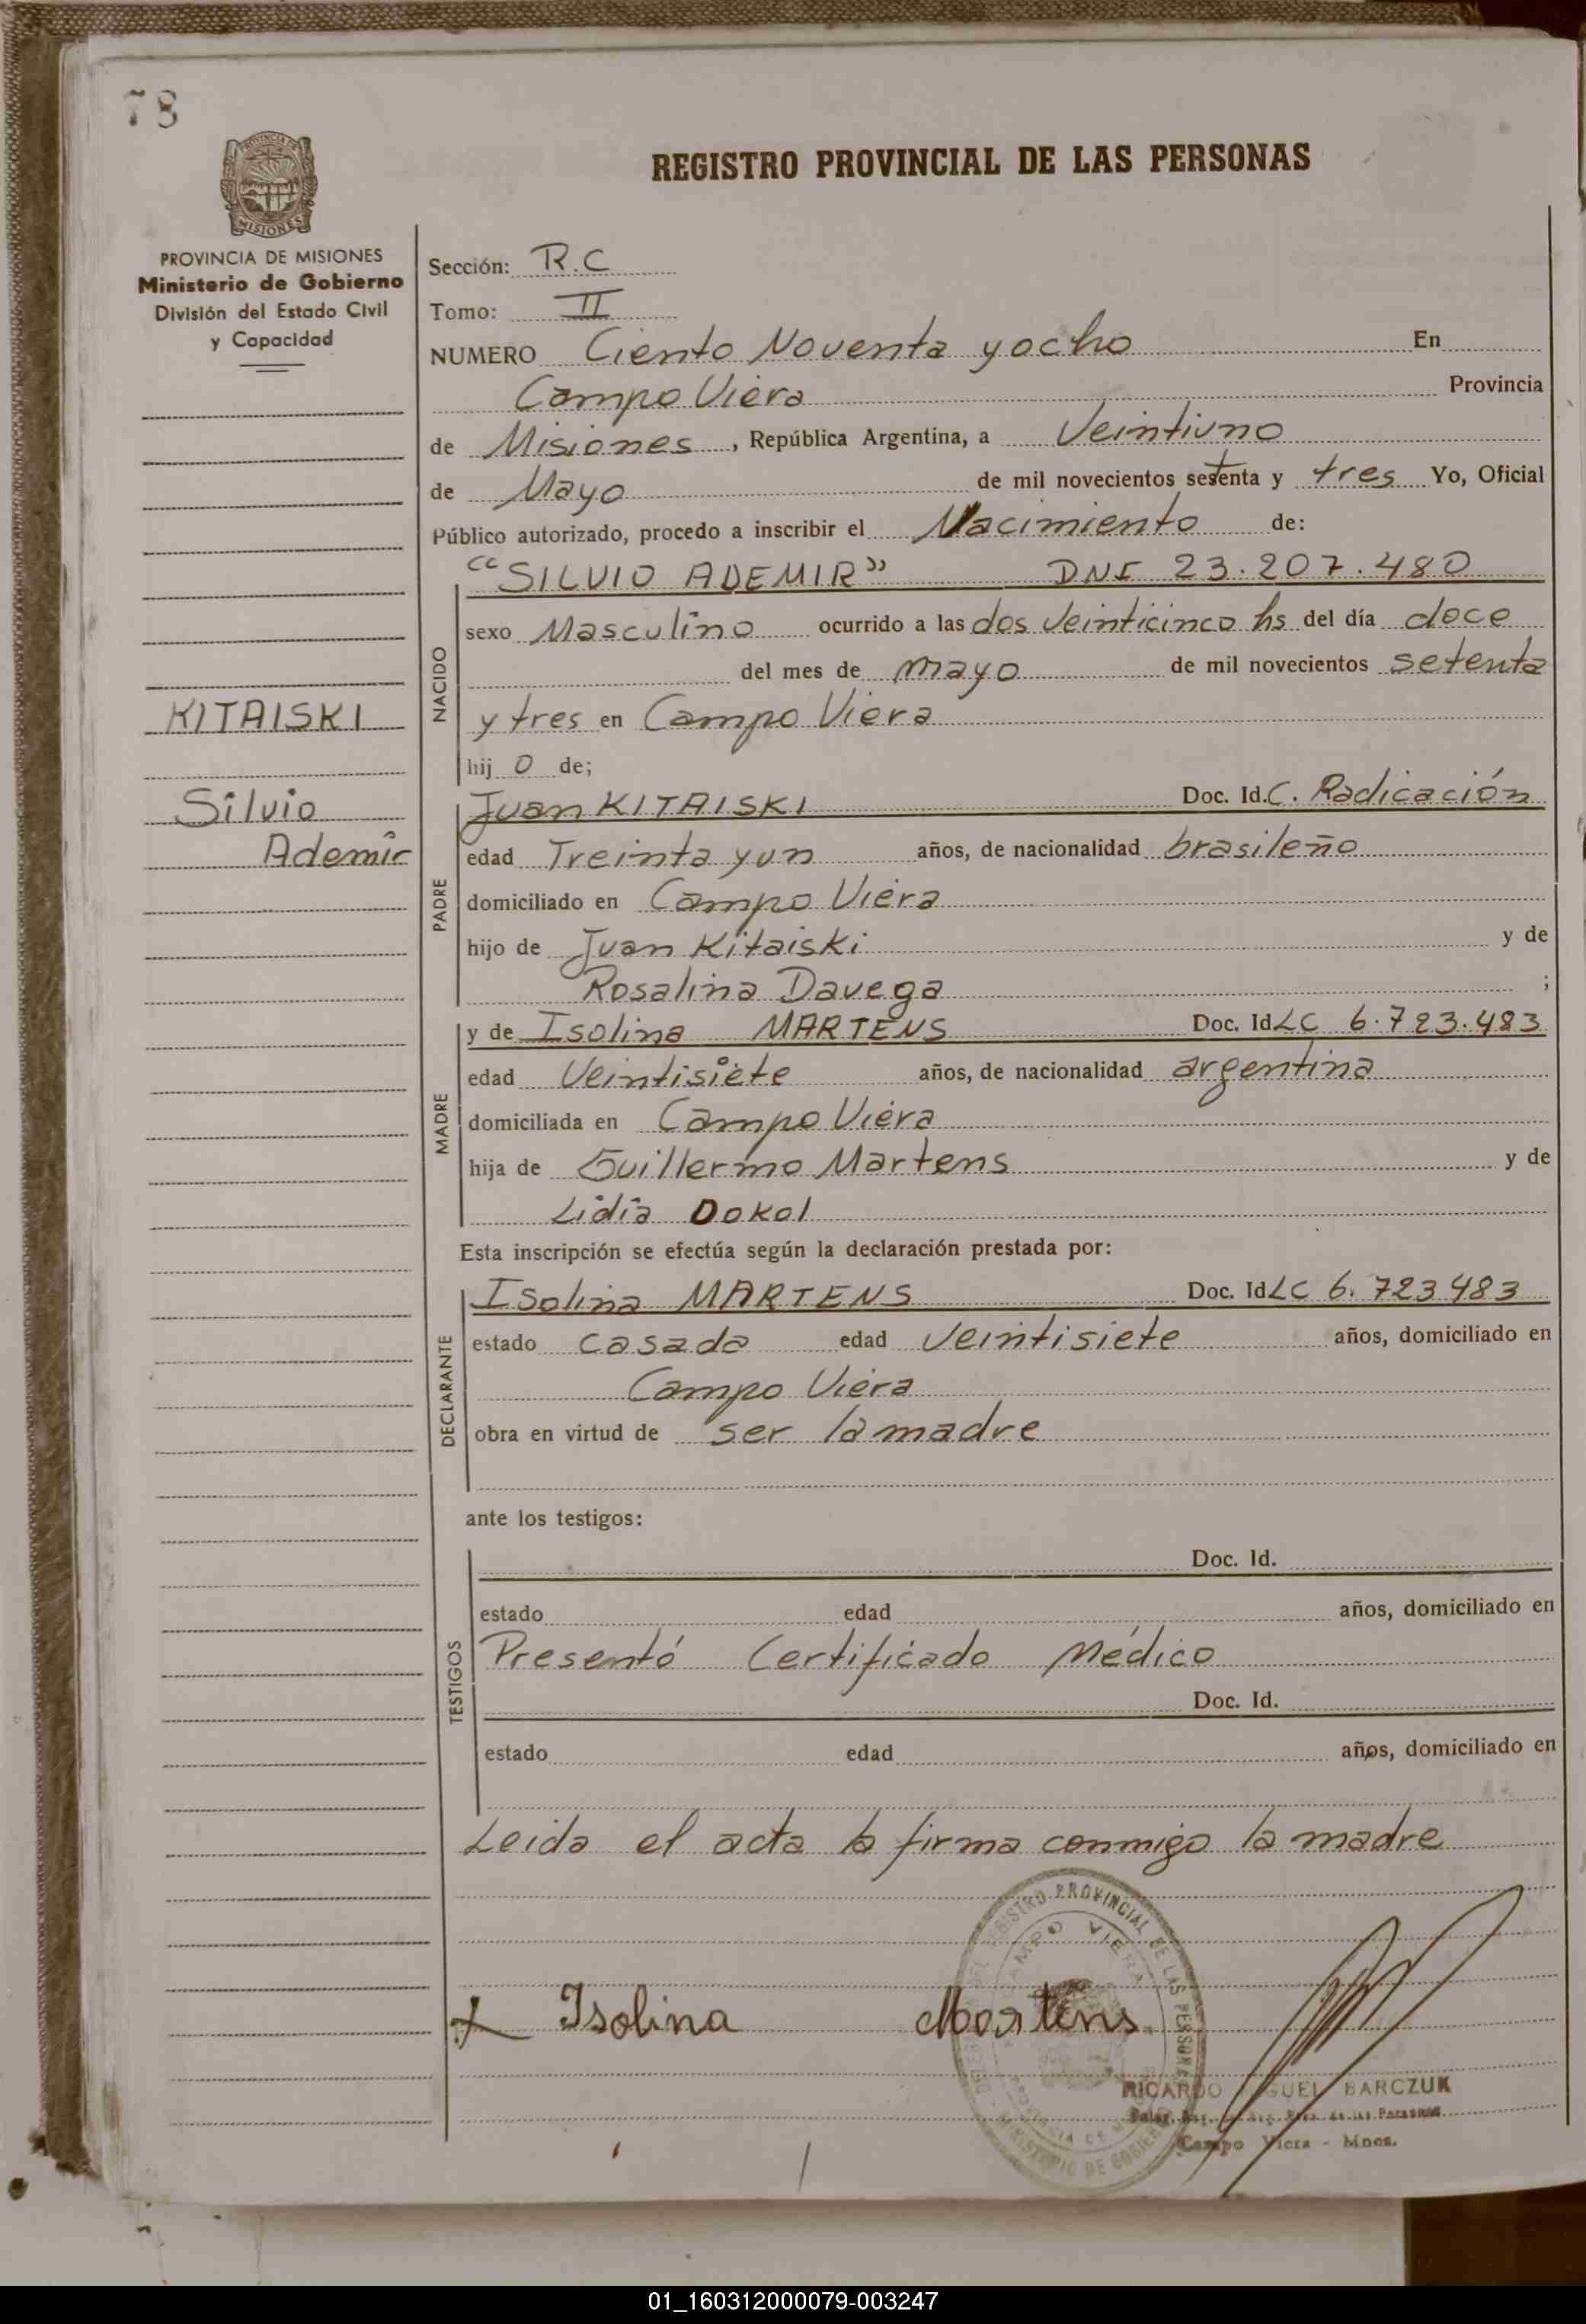 78
REGISTRO PROVINCIAL DE LAS PERSONAS
PROVINCIA DE MISIONES
Ministerio de Gobierno
División del Estado Civil
y Capacidad
KITAISKI
Silvio
Ademir
Sección: R.C
Tomo: II
NUMERO Ciento Noventa y ocho En
Campo Viera Provincia
de Misiones, República Argentina, a Veintiuno
de Mayo de mil novecientos setenta y tres Yo, Oficial
Público autorizado, procedo a inscribir el Nacimiento de:
NACIDO
"SILVIO ADEMIR" DNI 23.207.480
sexo Masculino ocurrido a las dos veinticinco hs del día doce
del mes de mayo de mil novecientos setenta
y tres en Campo Viera
hij o de;
PADRE
Juan KITAISKI Doc. Id. C. Radicación
edad Treinta y un años, de nacionalidad brasileño
domiciliado en Campo Viera
hijo de Juan Kitaiski y de
Rosalina Davega ;
MADRE
y de Isolina MARTENS Doc. Id LC 6.723.483
edad Veintisiete años, de nacionalidad argentina
domiciliada en Campo Viera
hija de Guillermo Martens y de
Lidia Dokol
Esta inscripción se efectúa según la declaración prestada por:
DECLARANTE
Isolina MARTENS Doc. Id LC 6.723483
estado casada edad veintisiete años, domiciliado en
Campo Viera
obra en virtud de ser la madre
ante los testigos:
TESTIGOS
Doc. Id.
estado edad años, domiciliado en
Presentó Certificado Médico
Doc. Id.
estado edad años, domiciliado en
Leida el acta la firma conmigo la madre
REGISTRO PROVINCIAL DE LAS PERSONAS
CAMPO VIERA
MINISTERIO DE GOBIERNO
x Isolina Martens
RICARDO MIGUEL BARCZUK
de las Personas
Campo Viera - Mnes.
01_160312000079-003247